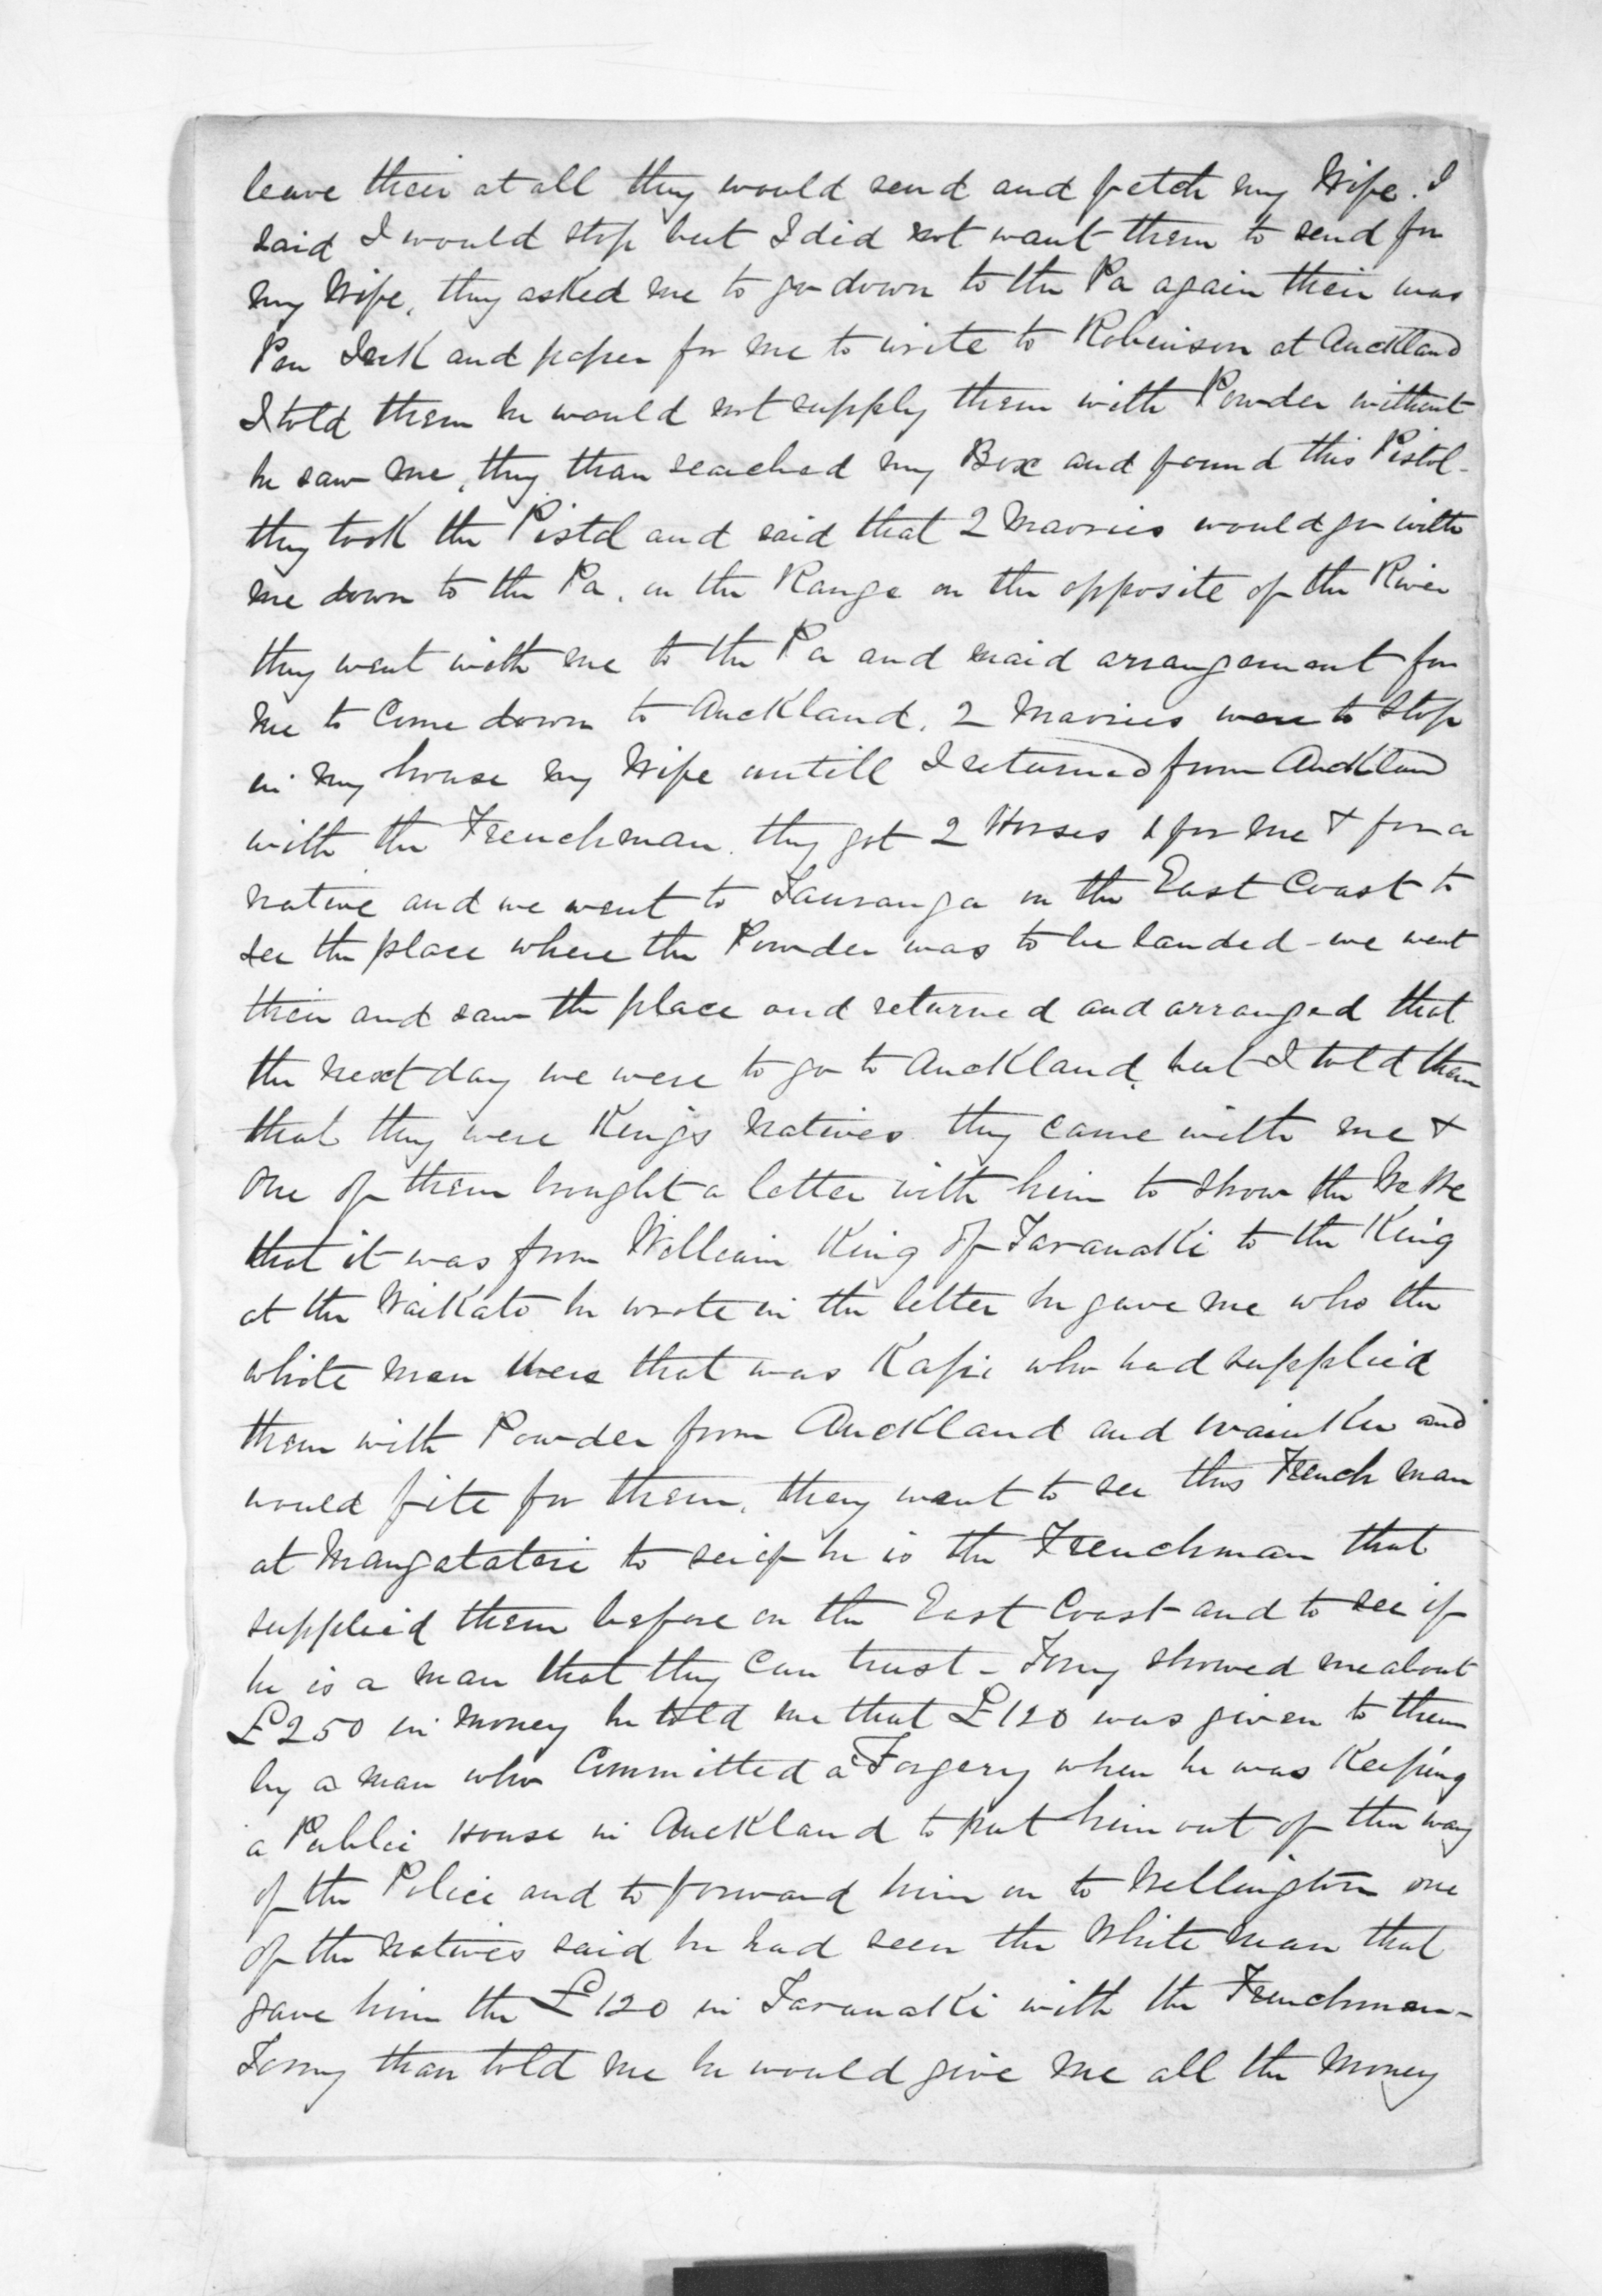 leave their at all they would send and fetch my Wife. I
said I would stop but I did not want them to send for
my Wife, they asked me to go down to the Pa again their was
Pen Ink and paper for me to write to Robinson at Auckland
I told them he would not supply them with Powder without
he saw me, they than searched my Box and found this Pistol -
they took the Pistol and said that 2 Maories would go with
me down to the Pa. in the Range on the opposite of the River
they went with me to the Pa and maid arrangement for
me to Come down to Auckland. 2 Maories were to stop
in my house my Wife untill I returned from Auckland
with the Frenchman. they got 2 Horses 1 for me & for a
native and we went to Tauranga on the East Coast to
see the place where the Powder was to be landed - we went
their and saw the place and returned and arranged that
the next day we were to go to Auckland, but I told them
that they were Kings natives they came with me &
One of them bought a letter with him to show the We We
that it was from William King of Taranaki to the King
at the Waikato he wrote in the letter he gave me who the
white men were that was Kapi who had supplied
them with Powder from Auckland and and
would fite for them, they want to see this French man
at Mangatatari to see if he is the Frenchman that
supplied them before on the East Coast and to see if
he is a man that they Can trust - Tomy showed me about
£250 in money he told me that £120 was given to them
by a man who Committed a Forgery when he was Keeping
a Public House in Auckland to put him out of the way
of the Police and to forward him on to Wellington one
of the natives said he had seen the White man that
gave him the £120 in Taranaki with the Frenchman -
Tomy than told me he would give me all the Money